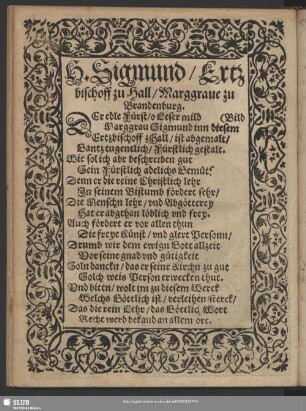 H. Sigmund / Ertz
bischoff zu Hall / Marggraue zu
Brandenburg.
Er edle Fürst / o Leser mild (Bild
DMarggrau Sigmund inn diesem
Ertzbischoff zHall / ist abgemalt /
Gantz tugentlich / Fürstlich gestalt.
Wie sol ich abr beschreiben gut
Sein Fürstlich adelichs Gemüt?
Denn er die reine Christlich lehr
In seinem Bistumb fördert sehr /
Die Menschn lehr / vnd Abgötterey
Hat er abgthan löblich vnd frey.
Auch fördert er vor allen thun
Die freye Künst / vnd glert Personn /
Drumb wir dem ewign Gott allzeit
Vor seine gnad vnd gütigkeit
Soln danckn / das er seinr Kirchn zu gut
Solch weis Person erwecken thut.
Vnd biten / wolt jm zu diesem Werck
Welchs Göttlich ist / verleihen sterck /
Das die rein Lehr / das Göttlich Wort
Recht werd bekand an allem ort.
SLUB
Wir führen Wissen.